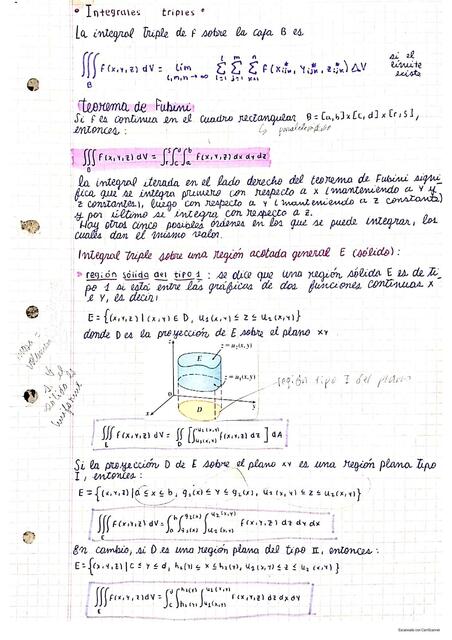 • Integrales triples •
La integral triple de f sobre la caja B es
∭_B f(x,y,z) dV = lim_{l,m,n→∞} Σ_{i=1}^{l} Σ_{j=1}^{m} Σ_{k=1}^{n} f(x*_{ijk}, y*_{ijk}, z*_{ijk}) ΔV si el límite existe
teorema de Fubini
Si f es continua en el cuadro rectangular B=[a,b]x[c,d]x[r,s],
entonces:
∭_B f(x,y,z) dV = ∫_r^s ∫_c^d ∫_a^b f(x,y,z) dx dy dz
la integral iterada en el lado derecho del teorema de Fubini signi
fica que se integra primero con respecto a x (manteniendo a y y
z constantes), luego con respecto a y (manteniendo a z constante)
y por último se integra con respecto a z.
Hay otros cinco posibles órdenes en los que se puede integrar, los
cuales dan el mismo valor.
Integral triple sobre una región acotada general E (sólido):
región sólida del tipo 1 : se dice que una región sólida E es de ti
po 1 si está entre las gráficas de dos funciones continuas x
e y, es decir,
E = {(x,y,z) | (x,y) ∈ D, u₁(x,y) ≤ z ≤ u₂(x,y)}
donde D es la proyección de E sobre el plano xy
z
z = u₂(x,y)
E
z = u₁(x,y)
0
D
y
x
región tipo I del plano
∭_E f(x,y,z) dV = ∬_D [∫_{u₁(x,y)}^{u₂(x,y)} f(x,y,z) dz] dA
Si la proyección D de E sobre el plano xy es una región plana tipo
I, entonces:
E = {(x,y,z) | a ≤ x ≤ b, g₁(x) ≤ y ≤ g₂(x), u₁(x,y) ≤ z ≤ u₂(x,y)}
∭_E f(x,y,z) dV = ∫_a^b ∫_{g₁(x)}^{g₂(x)} ∫_{u₁(x,y)}^{u₂(x,y)} f(x,y,z) dz dy dx
En cambio, si D es una región plana del tipo II, entonces:
E = {(x,y,z) | c ≤ y ≤ d, h₁(y) ≤ x ≤ h₂(y), u₁(x,y) ≤ z ≤ u₂(x,y)}
∭_E f(x,y,z) dV = ∫_c^d ∫_{h₁(y)}^{h₂(y)} ∫_{u₁(x,y)}^{u₂(x,y)} f(x,y,z) dz dx dy
Escaneado con CamScanner